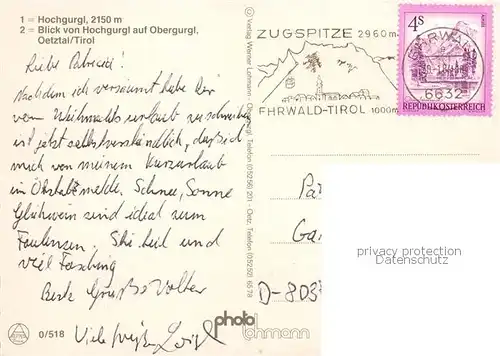 1 = Hochgurgl, 2150 m
2 = Blick von Hochgurgl auf Obergurgl,
Oetztal/Tirol
Liebe Patricia!
Nachdem ich versäumt habe Dir
vom Weihnachtsurlaub zu schreiben
ist jetzt selbstverständlich, daß ich
mich von meinem Kurzurlaub
im Ötztal melde. Schnee, Sonne
Glühwein sind ideal zum
Faulenzen. Ski heil und
viel Fasching
Beste Grüße Volker
Viele Grüße
0/518
© Verlag Werner Lohmann, Obergurgl, Telefon (05256) 201 - Oetz, Telefon (05252) 65 78
ZUGSPITZE 2960 m
EHRWALD-TIROL 1000m
EHRWALD
6632
4S
REPUBLIK ÖSTERREICH
D-803
privacy protection
www.ansichtskartenversand.com
photo
lohmann